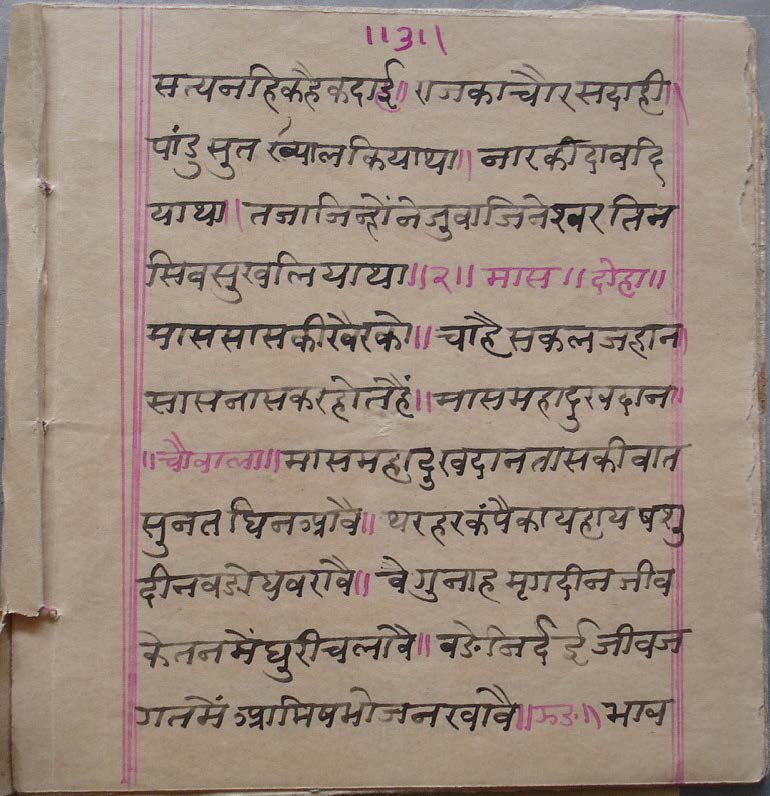 ॥३॥
सत्यनहिकहैकदाई॥ राजकाचौरसदाही॥
पांडुसुत ख्यालकियाथा॥ नारकीदावदि
याथा॥ तजाजिन्होंनेजुवाजिनेश्वरतिन
सिवसुखलियाथा॥२॥ मास॥दोहा॥
माससासकीखैरको॥ चाहैसकलजहान॥
सासनासकरहोतहैं॥ मासमहादुखदान॥
॥चौवाला॥मासमहादुखदानतासकीवात
सुनतघिनआवै॥ थरहरकंपैकायहायपशु
दीनवडोघवरावै॥ वेगुनाहमृगदीनजीव
केतनमेंछुरीचलावै॥ वडेनिर्दईजीवज
गतमेंआमिषभोजनखावै॥झड॥भाव